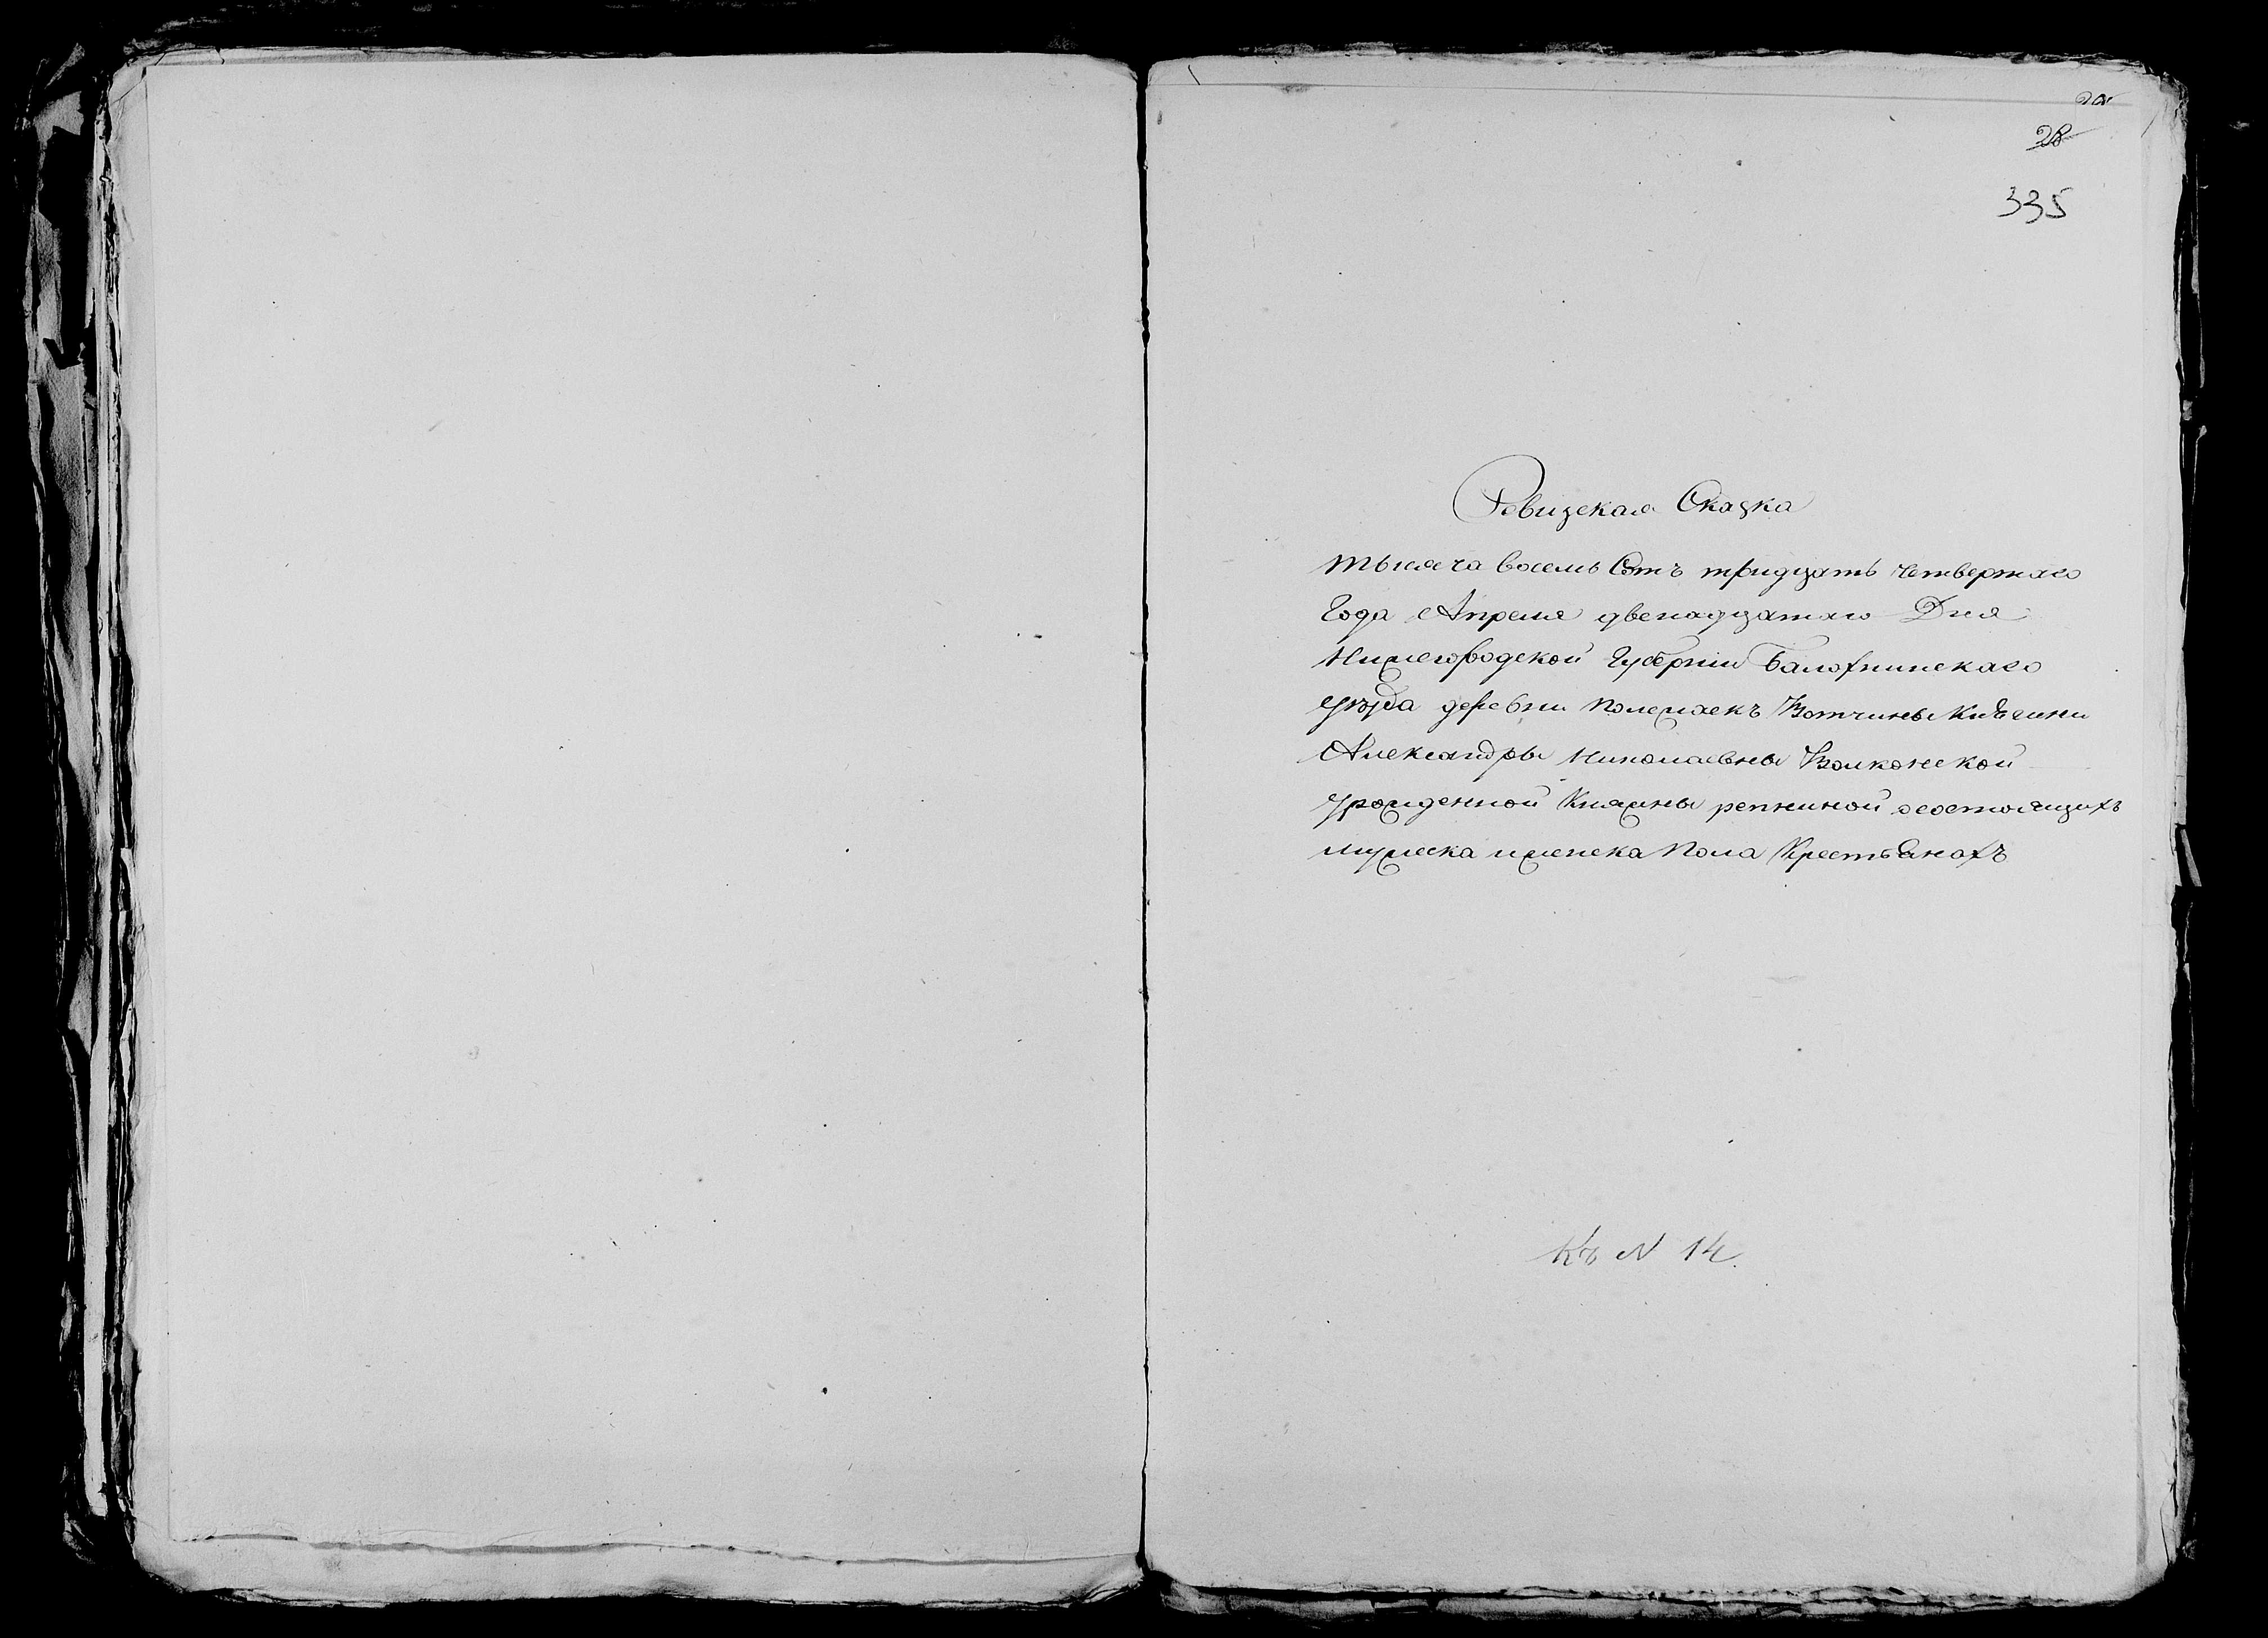 28
335
Ревизская Сказка
тысяча восемь Сотъ тридцать четвертаго
Года Апреля двенадцатаго Дня
Нижегородской Губернiи Балохнинскаго
уѣзда деревни Вотчины Княгини
Александры Николаевны Волконской
урожденной Княжны репниной осостоящихъ
мужеска иженска Пола Крестьянахъ
Къ N 14.